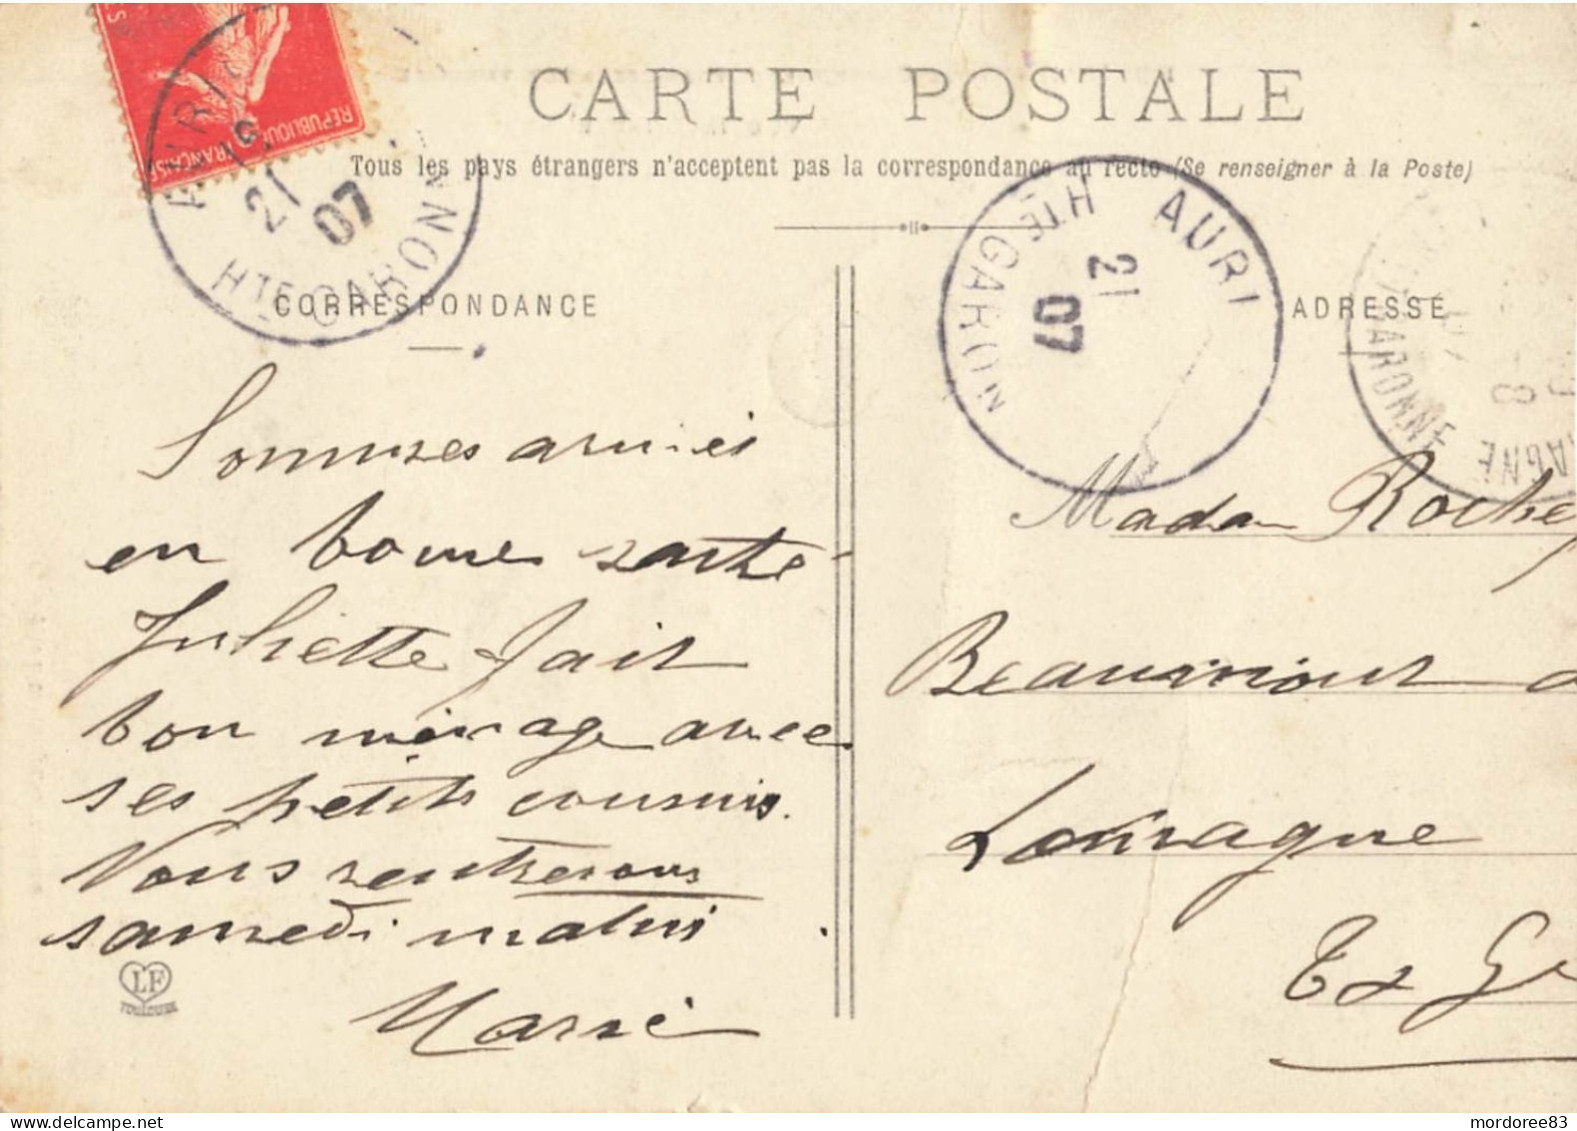 CARTE POSTALE
Tous les pays étrangers n'acceptent pas la correspondance au recto (Se renseigner à la Poste)
RÉPUBLIQUE FRANÇAISE
AURI
21
07
HTE GARONN
AURI
21
07
HTE GARONN
GARONNE
8
AGNE
CORRESPONDANCE
ADRESSE
Sommes arrivés
en bonne santé
Juliette fait
bon ménage avec
ses petits cousins.
Nous rentrerons
samedi matin
Marie
LF
TOULOUSE
Madam Roche
Beaumont d
Lomagne
Tt G
mordoree83